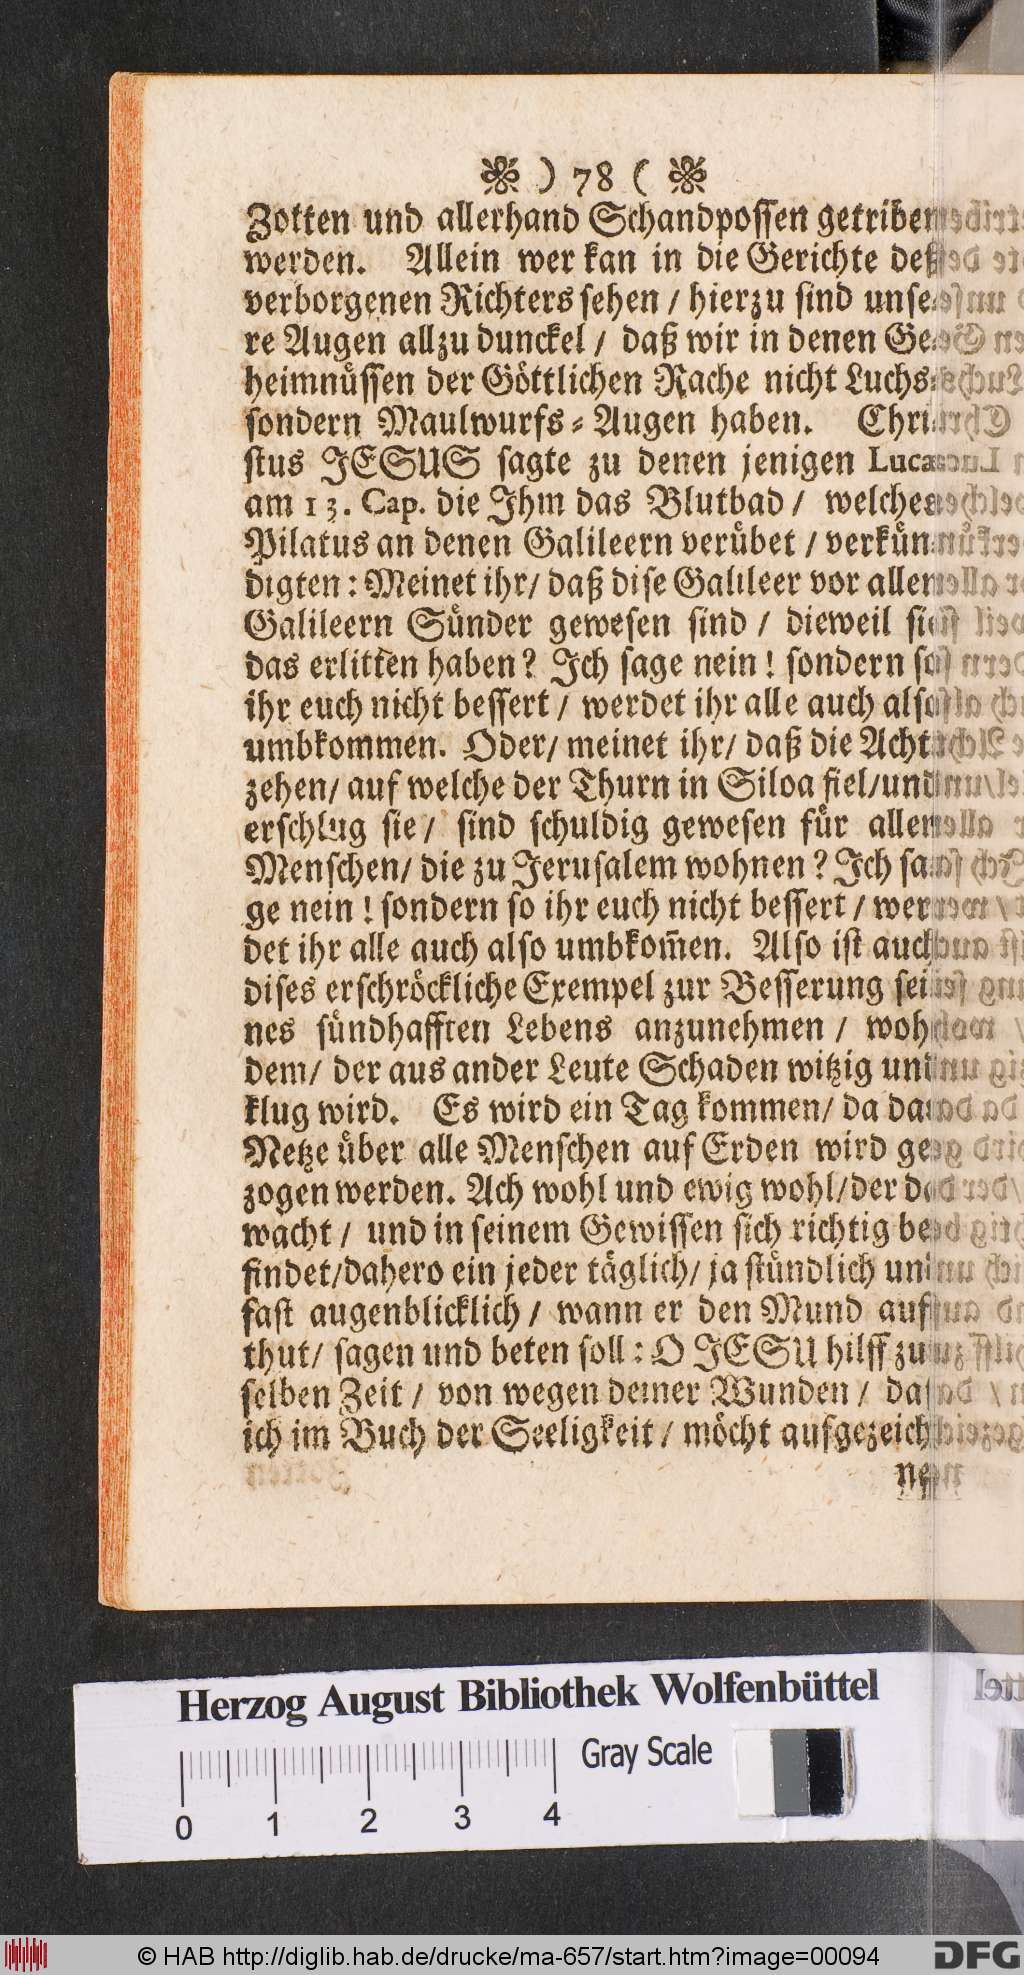 ) 78 (
Zotten und allerhand Schandpossen getriben
werden. Allein wer kan in die Gerichte deß
verborgenen Richters sehen / hierzu sind unse-
re Augen allzu dunckel / daß wir in denen Ge-
heimnüssen der Göttlichen Rache nicht Luchs-
sondern Maulwurfs-Augen haben. Chri-
stus JESUS sagte zu denen jenigen Lucæ
am 13. Cap. die Ihm das Blutbad / welches
Pilatus an denen Galileern verübet / verkün-
digten: Meinet ihr/ daß dise Galileer vor allen
Galileern Sünder gewesen sind / dieweil sie
das erlitten haben? Ich sage nein! sondern so
ihr euch nicht bessert / werdet ihr alle auch also
umbkommen. Oder/ meinet ihr/ daß die Acht-
zehen/ auf welche der Thurn in Siloa fiel/und
erschlug sie / sind schuldig gewesen für allen
Menschen/ die zu Jerusalem wohnen? Ich sa-
ge nein! sondern so ihr euch nicht bessert / wer-
det ihr alle auch also umbkom̃en. Also ist auch
dises erschröckliche Exempel zur Besserung sei-
nes sündhafften Lebens anzunehmen / wohl
dem/ der aus ander Leute Schaden witzig und
klug wird. Es wird ein Tag kommen/ da das
Netze über alle Menschen auf Erden wird ge-
zogen werden. Ach wohl und ewig wohl/der da
wacht / und in seinem Gewissen sich richtig be-
findet/dahero ein jeder täglich/ ja stündlich und
fast augenblicklich / wann er den Mund auf-
thut/ sagen und beten soll: O JESU hilff zu
selben Zeit / von wegen deiner Wunden / daß
ich im Buch der Seeligkeit / möcht aufgezeich-
net
Herzog August Bibliothek Wolfenbüttel
Gray Scale
0 1 2 3 4
© HAB http://diglib.hab.de/drucke/ma-657/start.htm?image=00094
DFG